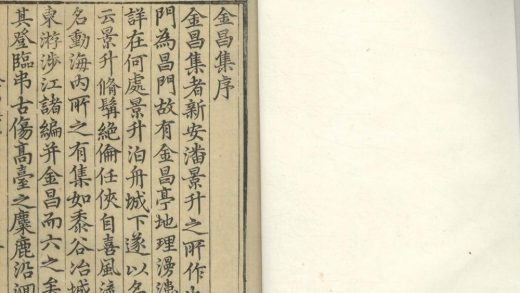 金昌集序
金昌集者新安潘景升之所作也
門為昌門故有金昌亭地理漫漶
詳在何處景升泊舟城下遂以名
云景升脩髯絕倫任俠自喜風流
名動海內所之有集如黍谷冶城
東游涉江諸編并金昌而六之矣
其登臨弔古傷高臺之麋鹿沿洄